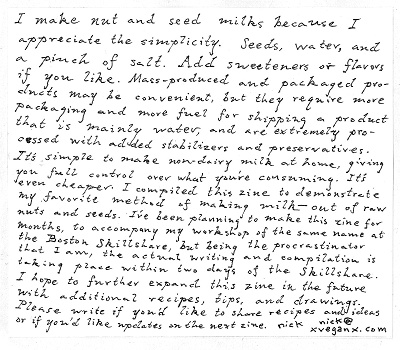 I make nut and seed milks because I
appreciate the simplicity. Seeds, water, and
a pinch of salt. Add sweeteners or flavors
if you like. Mass-produced and packaged pro-
ducts may be convenient, but they require more
packaging and more fuel for shipping a product
that is mainly water, and are extremely pro-
cessed with added stabilizers and preservatives.
It's simple to make non-dairy milk at home, giving
you full control over what you're consuming. It's
even cheaper. I compiled this zine to demonstrate
my favorite method of making milk out of raw
nuts and seeds. I've been planning to make this zine for
months, to accompany my workshop of the same name at
the Boston Skillshare, but being the procrastinator
that I am, the actual writing and compilation is
taking place within two days of the Skillshare.
I hope to further expand this zine in the future
with additional recipes, tips, and drawings.
Please write if you'd like to share recipes and ideas
or if you'd like updates on the next zine. nick nick@
xveganx.com